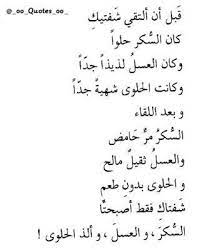 @_oo_Quotes_oo_
قَبل أن ألتقي شَفتيكِ
كان السُكر حلواً
وكان العسلُ لذيذاً جدّاً
وكانت الحلوى شهيةً جدّاً
و بعد اللقاء
السُكرُ مرٌ حَامض
والعسلُ ثقيلٌ مالح
و الحلوى بدونِ طعم
شَفتاكِ فقط أصبحتّا
السُكرَ ، و العسلَ ، و ألذ الحلوى !